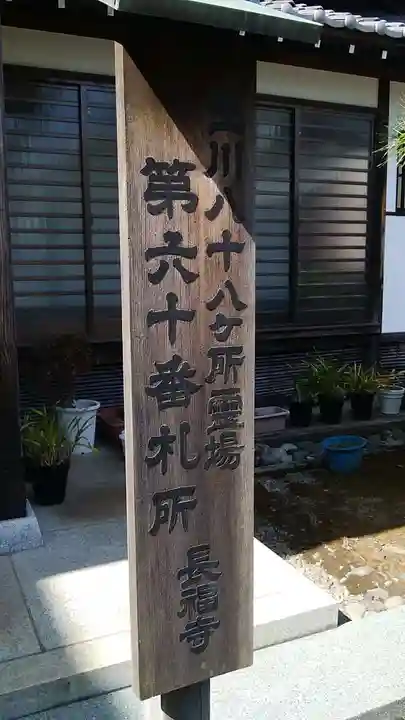 川八十八ヶ所霊場
第六十番札所
長福寺